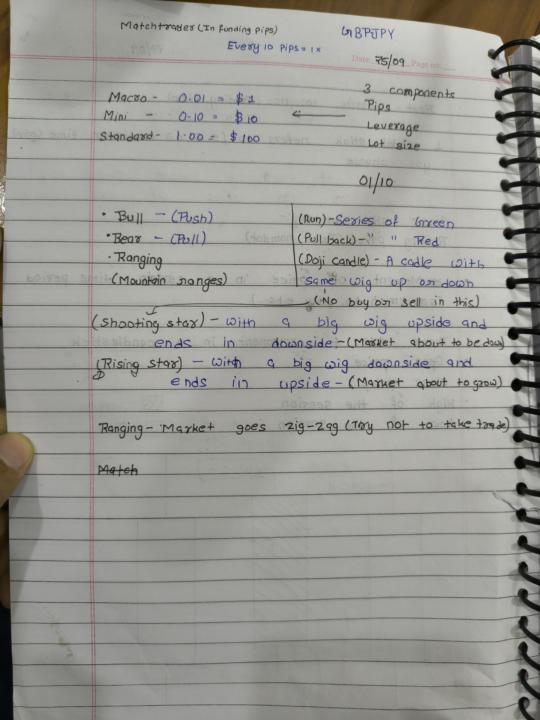 Matchtrader (In funding pips)
GBPJPY
Every 10 pips = 1x
Date 25/09 Page no.
3 components
Pips
Leverage
Lot size
Macro - 0.01 = $1
Mini - 0.10 = $10
Standard - 1.00 = $100
01/10
• Bull - (Push)
• Bear - (Pull)
• Ranging
(Mountain ranges)
(Run) - Series of Green
(Pull back) - " " Red
(Doji candle) - A cadle with
same wig up or down
(No buy or sell in this)
(Shooting star) - with a big wig upside and
ends in downside - (Market about to be down)
(Rising star) - with a big wig downside and
ends in upside - (Market about to grow)
Ranging - Market goes zig-zag (Try not to take trade)
Match